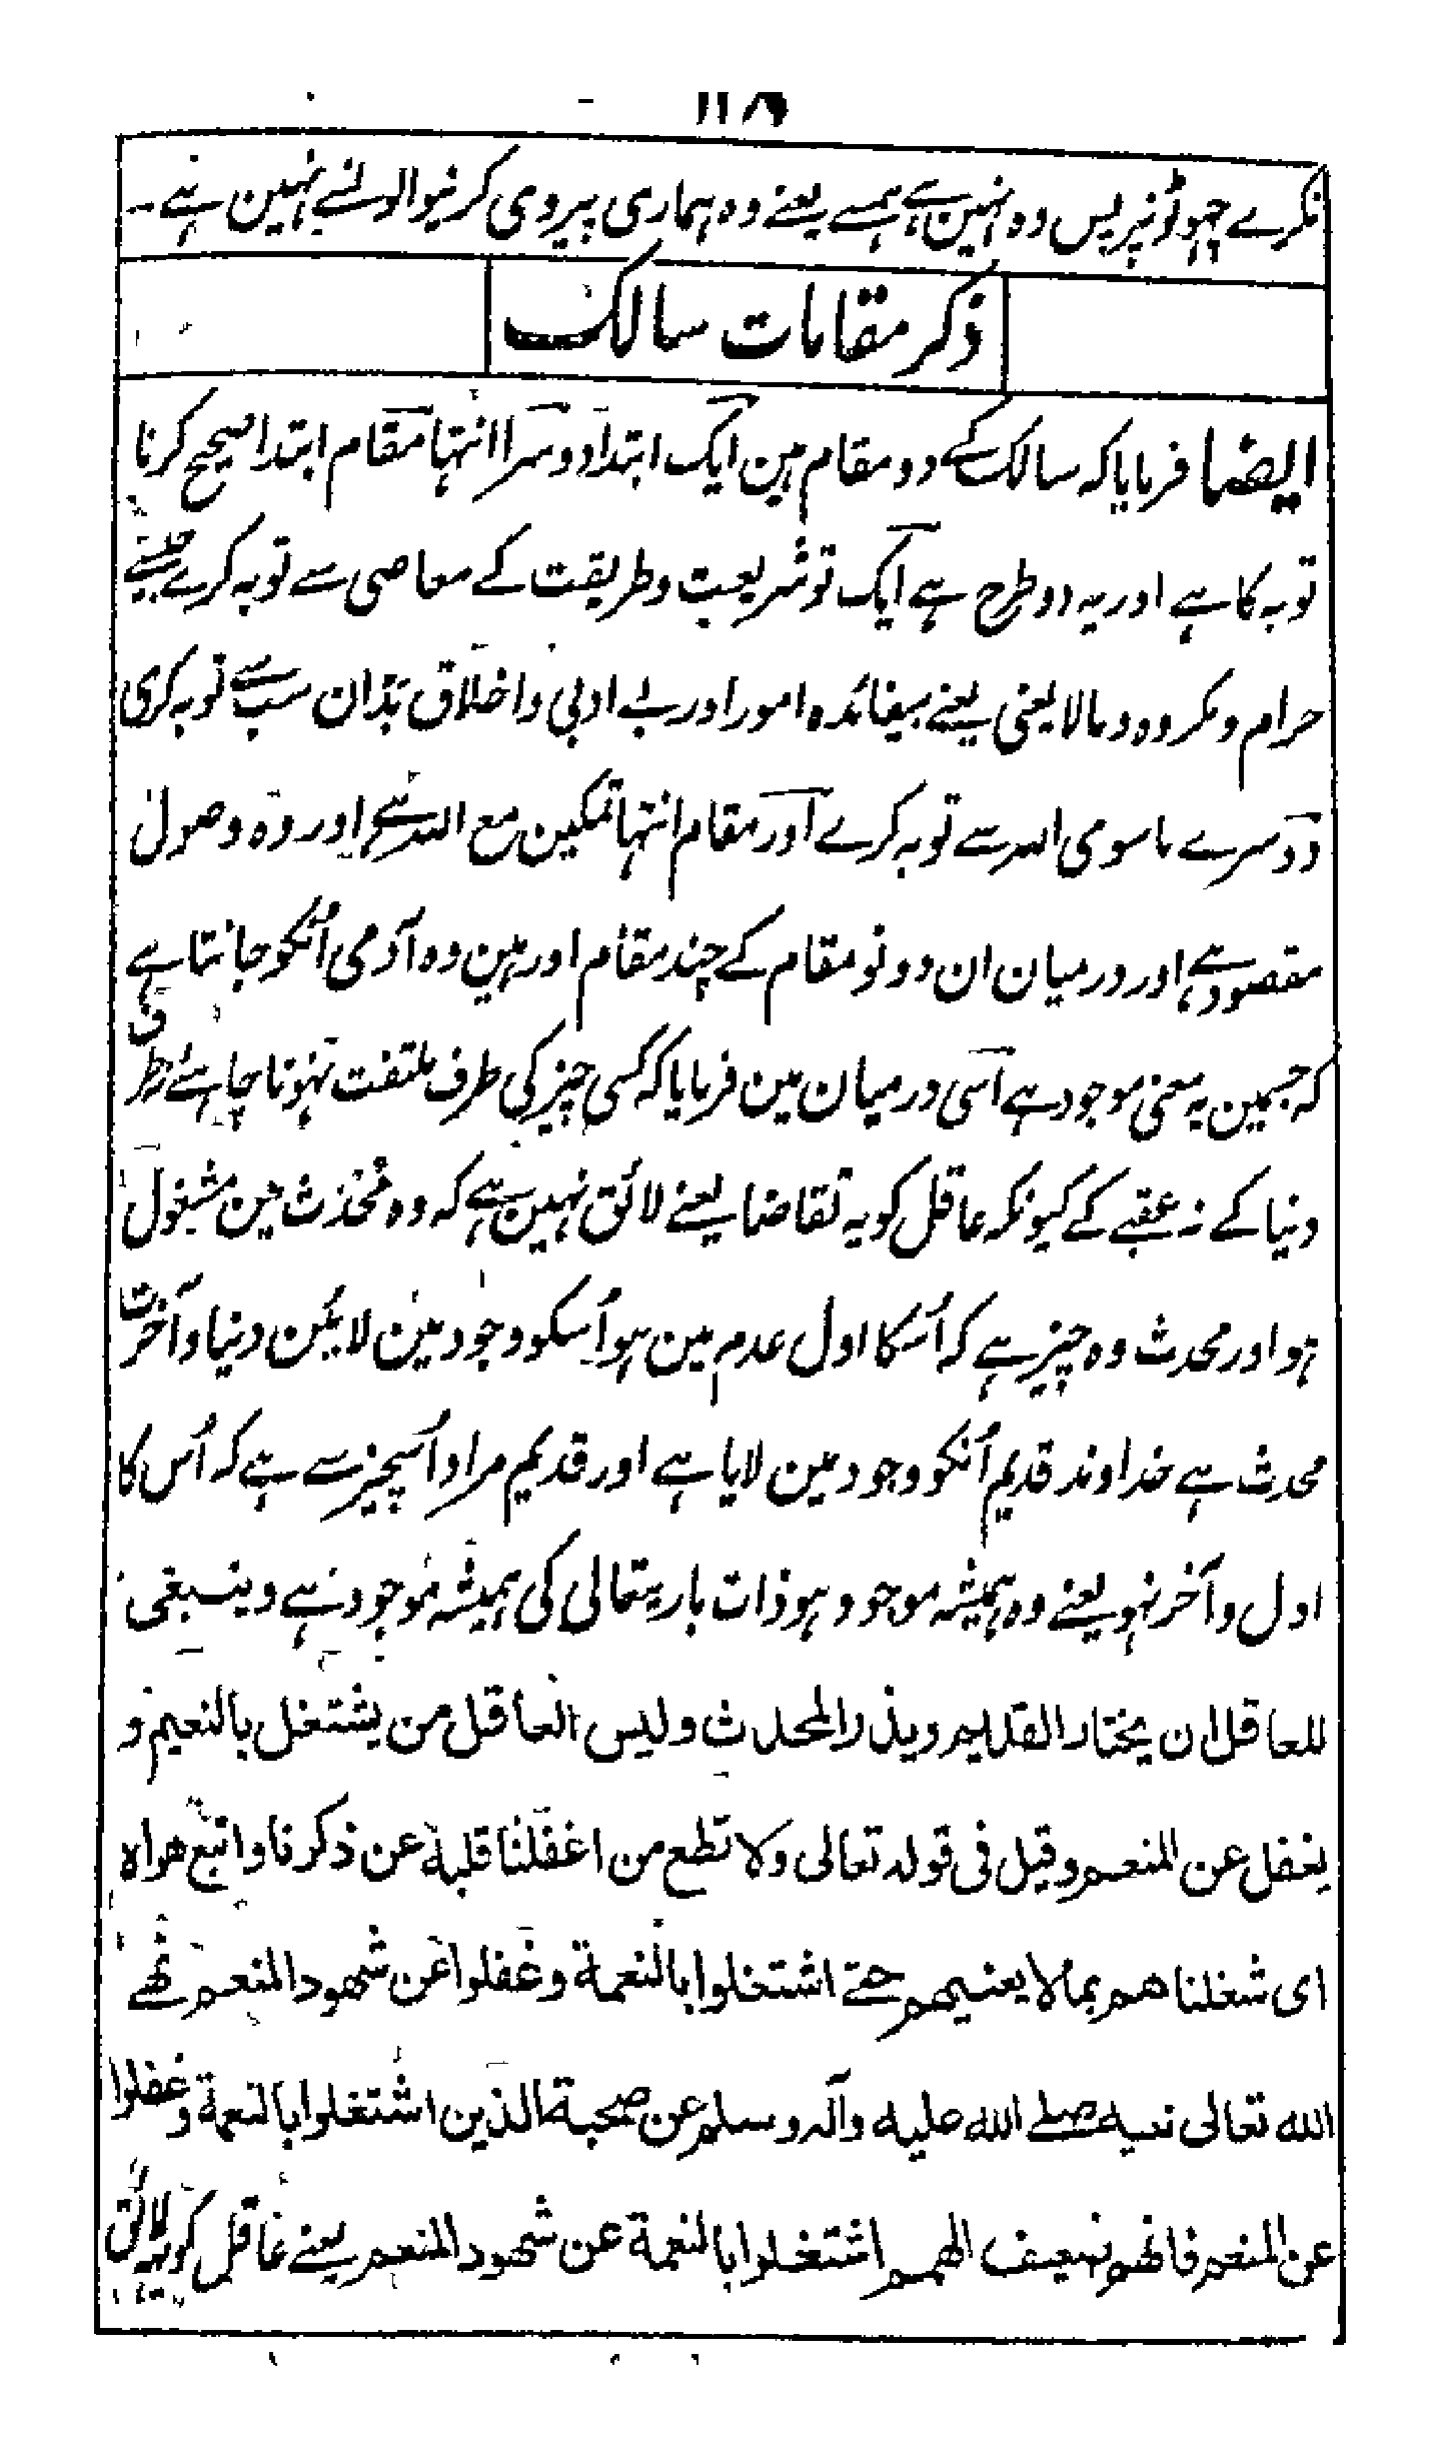 نکرے چھوٹونپر پس وہ نہین ہے ہمسے یعنے وہ ہماری پیروی کرنیوالونسے نہین ہے ۔
ذکر مقامات سالک
ایضا فرمایا کہ سالک کے دو مقام ہین ایک ابتدا دوسرا انتہا مقام ابتدا صحیح کرنا
توبہ کا ہے اور یہ دو طرح ہے ایک تو شریعت و طریقت کے معاصی سے توبہ کرے جیسے
حرام و مکروہ و مالا یعنی یعنے بیفائدہ امور اور بے ادبی و اخلاق بد ان سب سے توبہ کری
دوسرے ماسوی اللہ سے توبہ کرے اور مقام انتہا تمکین مع اللہ ہے اور وہ وصول
مقصود ہے اور درمیان ان دونو مقام کے چند مقام اور ہین وہ آدمی اُنکو جانتا ہے
کہ جسمین یہ معنی موجود ہے اسی درمیان مین فرمایا کہ کسی چیز کی طرف ملتفت نہونا چاہئے نہ طرف
دنیا کے نہ عقبے کے کیونکہ عاقل کو یہ تقاضا یعنے لائق نہین ہے کہ وہ محدث مین مشغول
ہو اور محدث وہ چیز ہے کہ اُسکا اول عدم مین ہو اُسکو وجود مین لائین دنیا و آخرت
محدث ہے خداوند قدیم اُنکو وجود مین لایا ہے اور قدیم مراد اُسچیز سے ہے کہ اُس کا
اول و آخر نہو یعنے وہ ہمیشہ موجود ہو ذات باریتعالی کی ہمیشہ موجود ہے وینبغی
للعاقل ان یختار القدیم ویذر المحدث ولیس العاقل من یشتغل بالنعیم و
یغفل عن المنعم وقیل فی قولہ تعالی ولا تطع من اغفلنا قلبہ عن ذکرنا واتبع ھواہ
ای شغلناھم بما لا یعنیھم حتے اشتغلوا بالنعمة وغفلوا عن شھود المنعم نھے
اللہ تعالی نبیہ صلے اللہ علیہ وآلہ وسلم عن صحبة الذین اشتغلوا بالنعمة وغفلوا
عن المنعم فانھم ضعیف الھمم اشتغلوا بالنعمة عن شھود المنعم یعنے عاقل کو یہ لائق